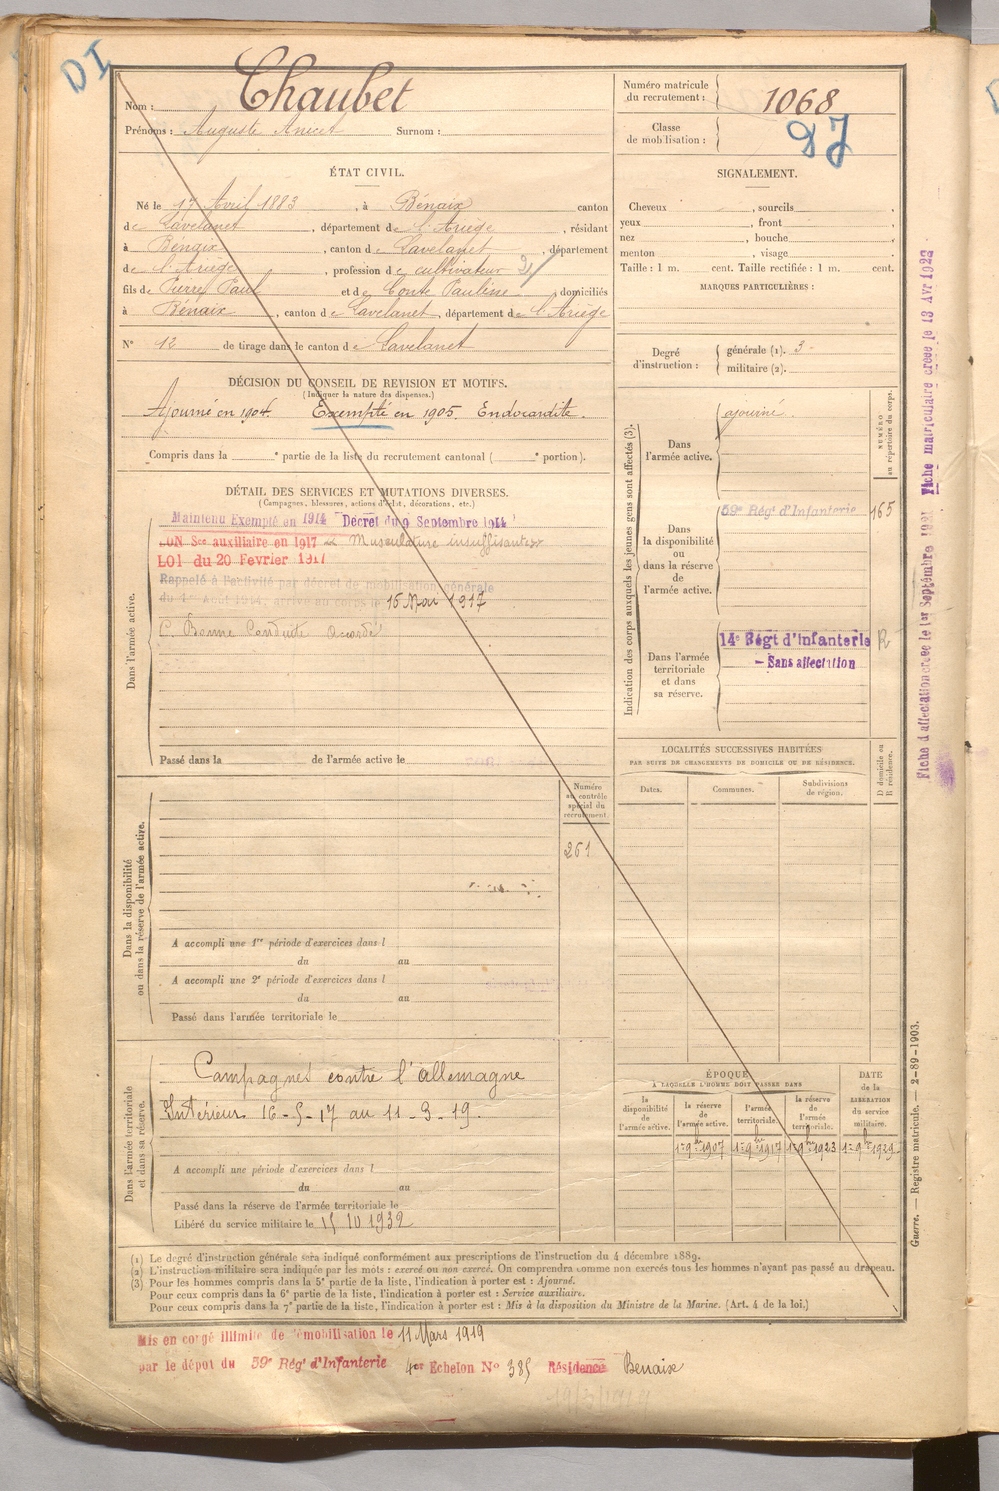 DI
Nom : Chaubet
Prénoms : Auguste Anicet Surnom :
Numéro matricule du recrutement : 1068
Classe de mobilisation :
ÉTAT CIVIL.
Né le 17 Avril 1883, à Bénaix canton
de Lavelanet, département de l'Ariège, résidant
à Bénaix, canton de Lavelanet, département
de l'Ariège, profession de cultivateur
fils de Pierre Paul et de Conte Pauline domiciliés
à Bénaix, canton de Lavelanet, département de l'Ariège
N° 12 de tirage dans le canton de Lavelanet
SIGNALEMENT.
Cheveux , sourcils ,
yeux , front ,
nez , bouche ,
menton , visage .
Taille : 1 m. cent. Taille rectifiée : 1 m. cent.
MARQUES PARTICULIÈRES :
Degré d'instruction :
générale (1). 3
militaire (2).
DÉCISION DU CONSEIL DE REVISION ET MOTIFS.
(Indiquer la nature des dispenses.)
Ajourné en 1904. Exempté en 1905 Endocardite.
Compris dans la e partie de la liste du recrutement cantonal ( e portion).
DÉTAIL DES SERVICES ET MUTATIONS DIVERSES.
(Campagnes, blessures, actions d'éclat, décorations, etc.)
Dans l'armée active.
Maintenu Exempté en 1914 Décret du 9 Septembre 1914
BON Sce auxiliaire en 1917 Musculature insuffisante
LOI du 20 Fevrier 1917
Rappelé à l'activité par décret de mobilisation générale
du 1er Août 1914, arrivé au corps le 16 Mai 1917
C. Bonne Conduite accordé
Passé dans la de l'armée active le
Indication des corps auxquels les jeunes gens sont affectés (3).
NUMÉRO au répertoire du corps.
Dans l'armée active.
ajourné.
Dans la disponibilité ou dans la réserve de l'armée active.
59e Régt d'Infanterie 165
Dans l'armée territoriale et dans sa réserve.
14e Régt d'Infanterie R
- Sans affectation
Fiche d'affectation créée le 1er Septembre 1921 Fiche matriculaire créée le 13 Avr 1922
LOCALITÉS SUCCESSIVES HABITÉES
PAR SUITE DE CHANGEMENTS DE DOMICILE OU DE RÉSIDENCE.
Dates. Communes. Subdivisions de région. D domicile ou R résidence.
Dans la disponibilité ou dans la réserve de l'armée active.
Numéro au contrôle spécial du recrutement.
261
A accompli une 1re période d'exercices dans l
du au
A accompli une 2e période d'exercices dans l
du au
Passé dans l'armée territoriale le
Dans l'armée territoriale et dans sa réserve.
Campagnes contre l'allemagne
Intérieur 16-5-17 au 11-3-19.
A accompli une période d'exercices dans l
du au
Passé dans la réserve de l'armée territoriale le
Libéré du service militaire le 15 10 1932
ÉPOQUE
À LAQUELLE L'HOMME DOIT PASSER DANS
la disponibilité de l'armée active.
la réserve de l'armée active.
l'armée territoriale.
la réserve de l'armée territoriale.
DATE de la LIBÉRATION du service militaire.
1er 9bre 1907 1er 9bre 1917 1er 9bre 1923 1er 9bre 1929
(1) Le degré d'instruction générale sera indiqué conformément aux prescriptions de l'instruction du 4 décembre 1889.
(2) L'instruction militaire sera indiquée par les mots : exercé ou non exercé. On comprendra comme non exercés tous les hommes n'ayant pas passé au drapeau.
(3) Pour les hommes compris dans la 5e partie de la liste, l'indication à porter est : Ajourné.
Pour ceux compris dans la 6e partie de la liste, l'indication à porter est : Service auxiliaire.
Pour ceux compris dans la 7e partie de la liste, l'indication à porter est : Mis à la disposition du Ministre de la Marine. (Art. 4 de la loi.)
Guerre. — Registre matricule. — 2-89-1903.
Mis en congé illimité de démobilisation le 11 Mars 1919
par le dépôt du 59e Rég' d'Infanterie 4er Echelon N° 385 Résidence Benaix
19/3/1919